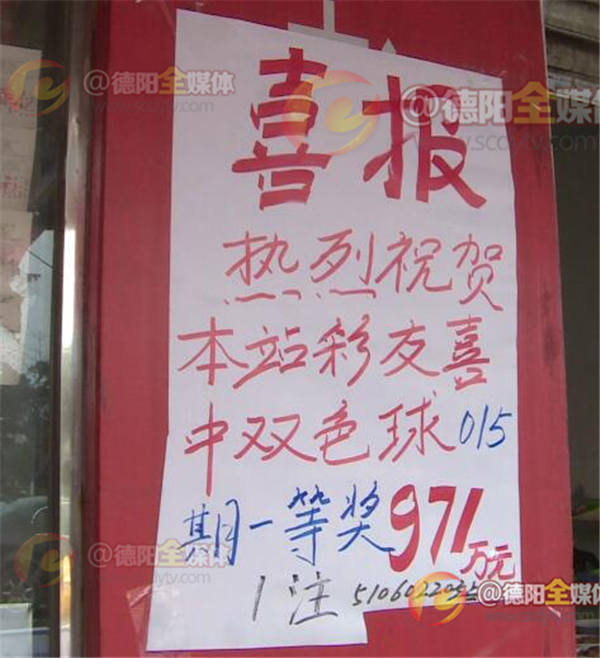 喜报
热烈祝贺
本站彩友喜
中双色球015
期一等奖971万元
1注
@德阳全媒体
www.scdytv.com
@德阳全媒体
www.scdytv.com
@德阳全媒体
@德阳全媒体